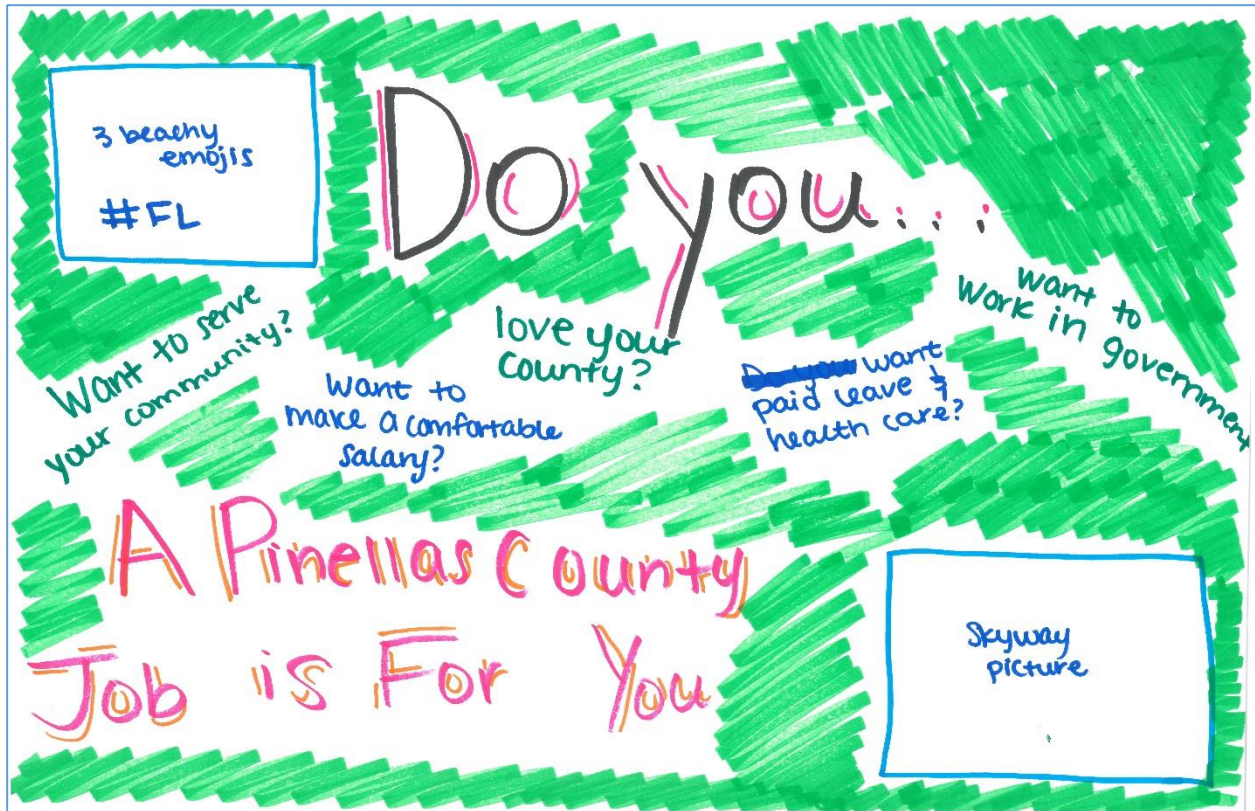 3 beachy
emojis
#FL
Do you...
Want to serve
your community?
want to
make a comfortable
salary?
love your
county?
want
paid leave &
health care?
want to
work in government
A Pinellas County
Job is For You
Skyway
picture